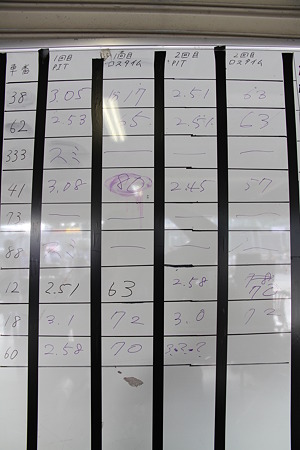 車番 1回目 PIT 1回目 ロスタイム 2回目 PIT 2回目 ロスタイム
38 3.05 17 2.51 53
62 2.53 2.51 63
333 スミ — — —
41 3.08 80 2.45 57
73 — — — —
88 — — —
12 2.51 63 2.58 70
18 3.1 72 3.0 72
60 2.58 70 3.?.?